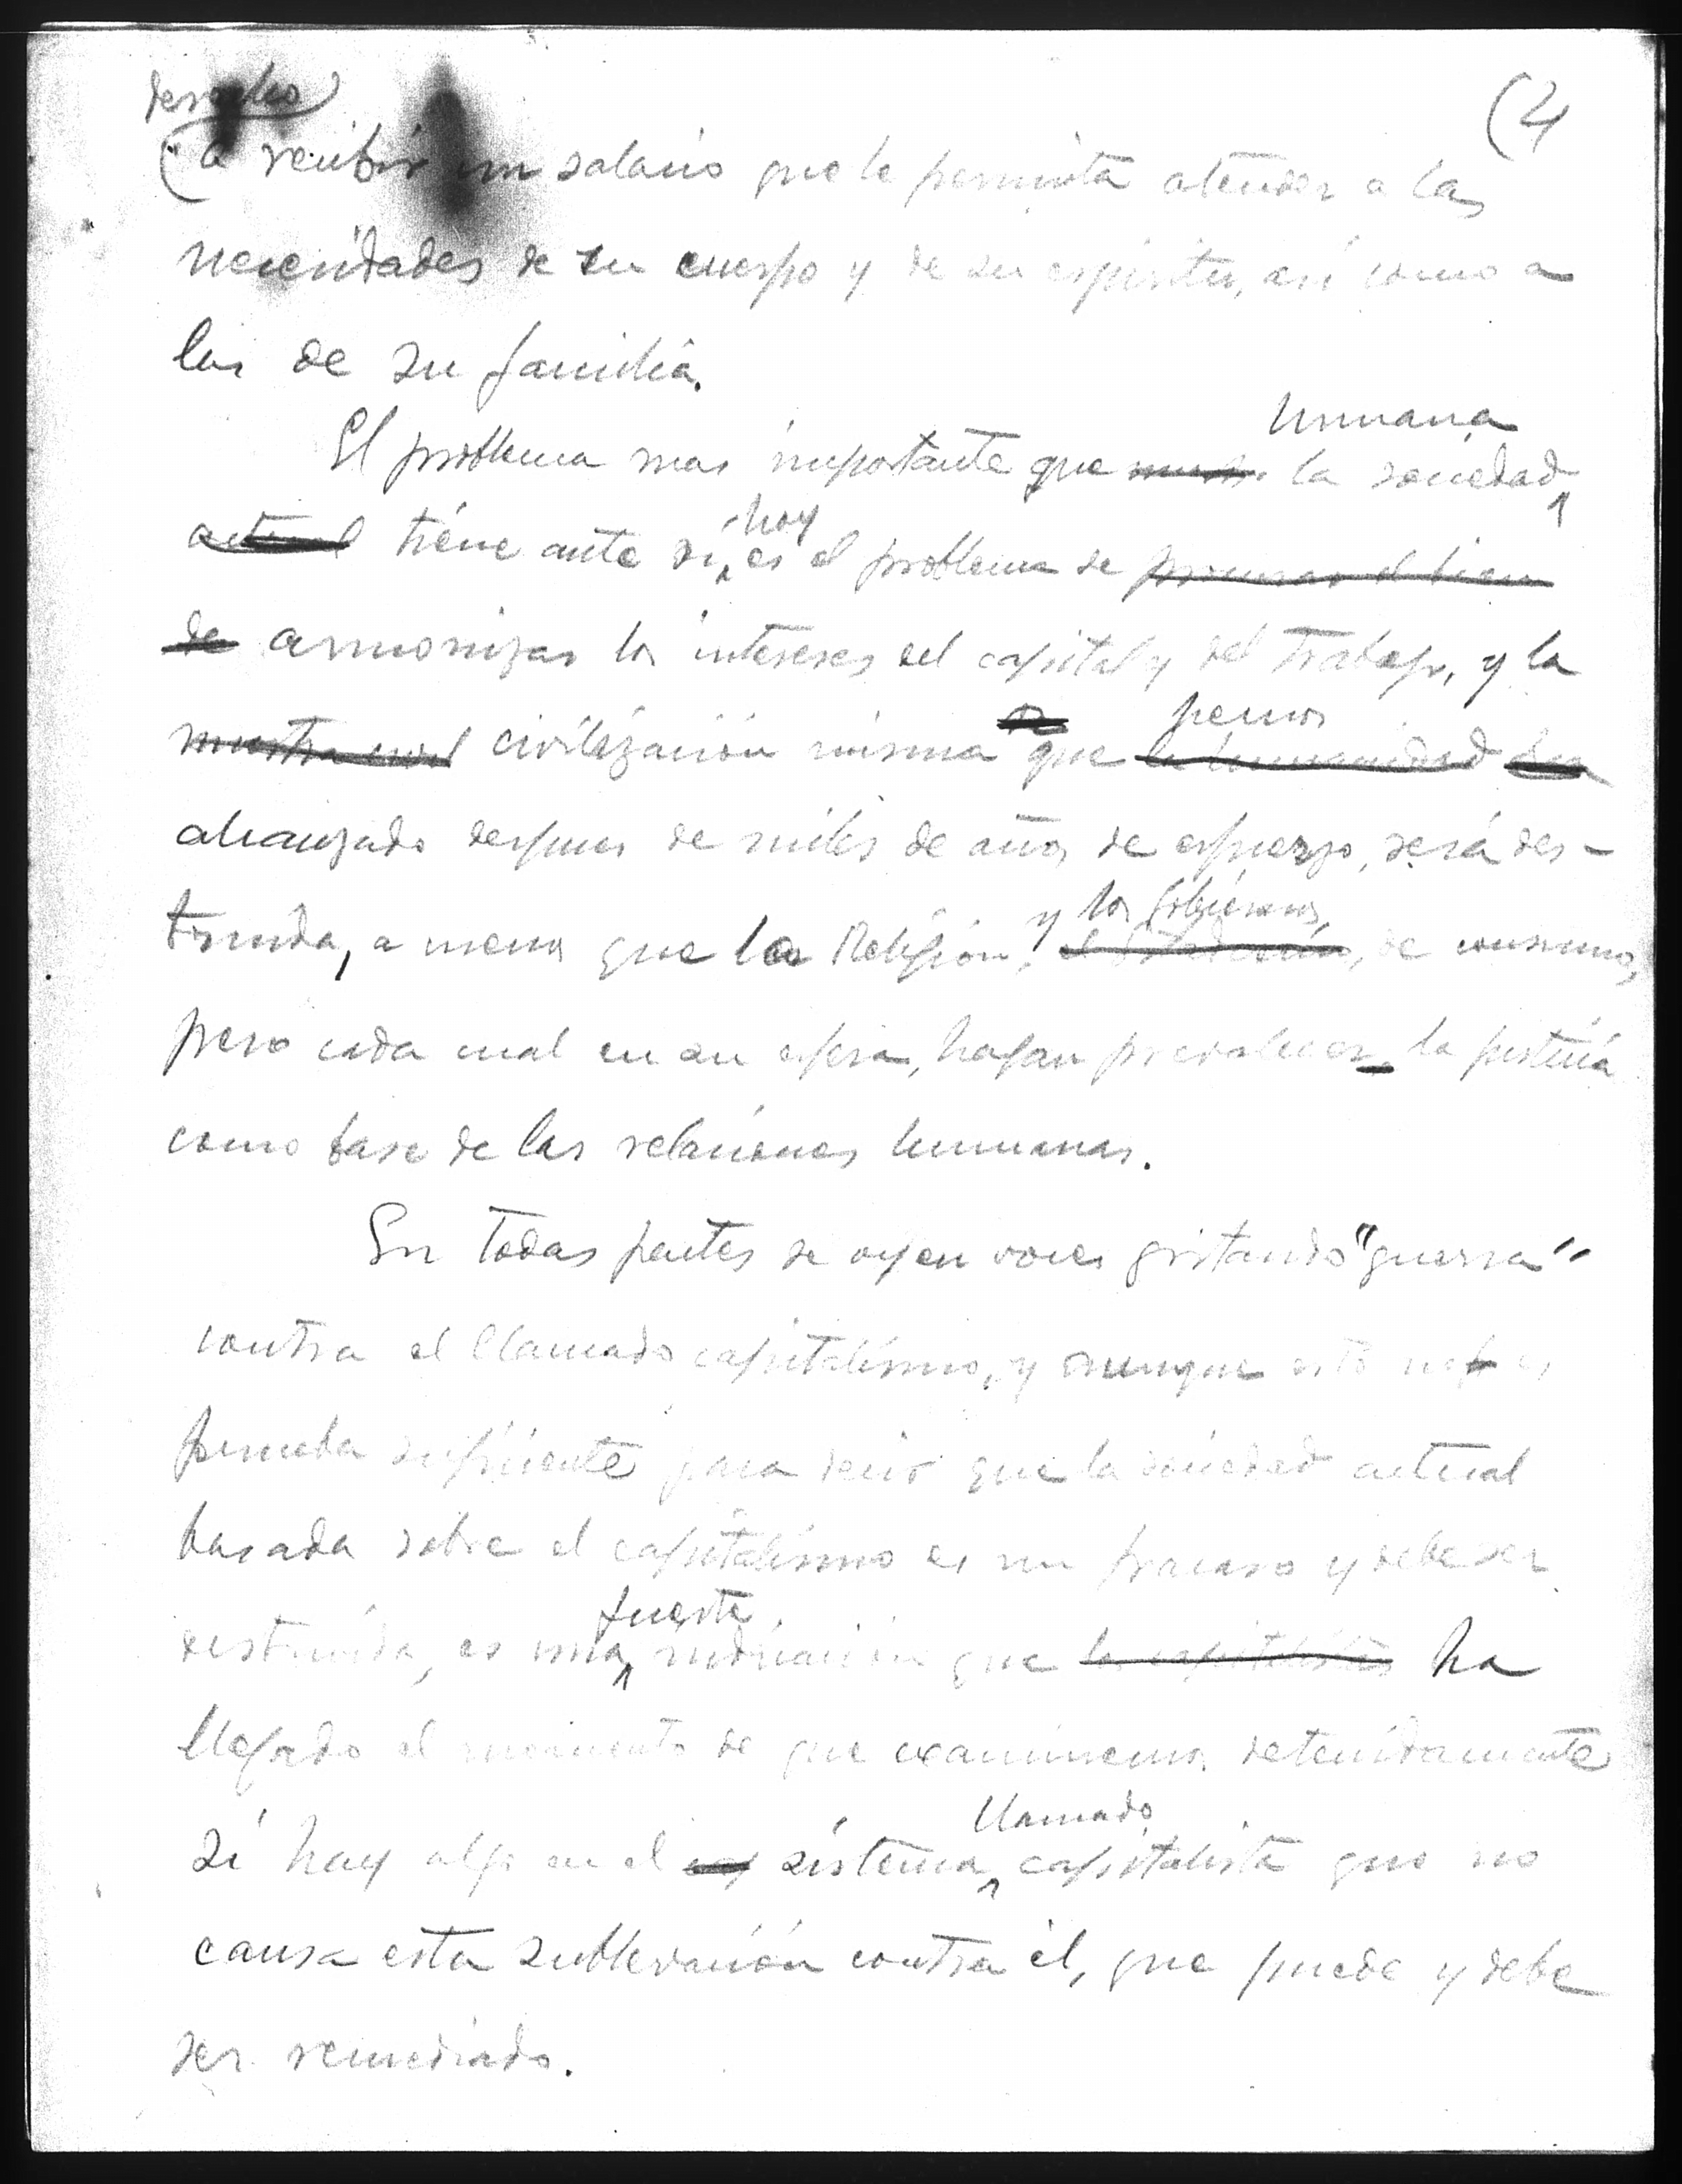 derecho
(4
(a recibir un salario que le permita atender a las
necesidades de su cuerpo y de su espíritu, así como a
las de su familia.
humana
El problema mas importante que la sociedad
hoy
actual tiene ante sí, es el problema de procurar el bien
de armonizar los intereses del capital y del trabajo, y la
hemos
nuestra civil civilización misma que la humanidad ha
alcanzado despues de miles de años de esfuerzo, será des-
y los Gobiernos,
truida, a menos que la Religión, de consuno,
pero cada cual en su esfera, hagan prevalecer la justicia
como base de las relaciones humanas.
En todas partes se oyen voces gritando "guerra"
contra el llamado capitalismo, y aunque esto no es
prueba suficiente para decir que la sociedad actual
basada sobre el capitalismo es un fracaso y debe ser
fuerte
destruida, es una indicación que los capitalistas ha
llegado el momento de que examinemos detenidamente
llamado
si hay algo en el sistema capitalista que no
causa esta sublevación contra él, que puede y debe
ser remediado.